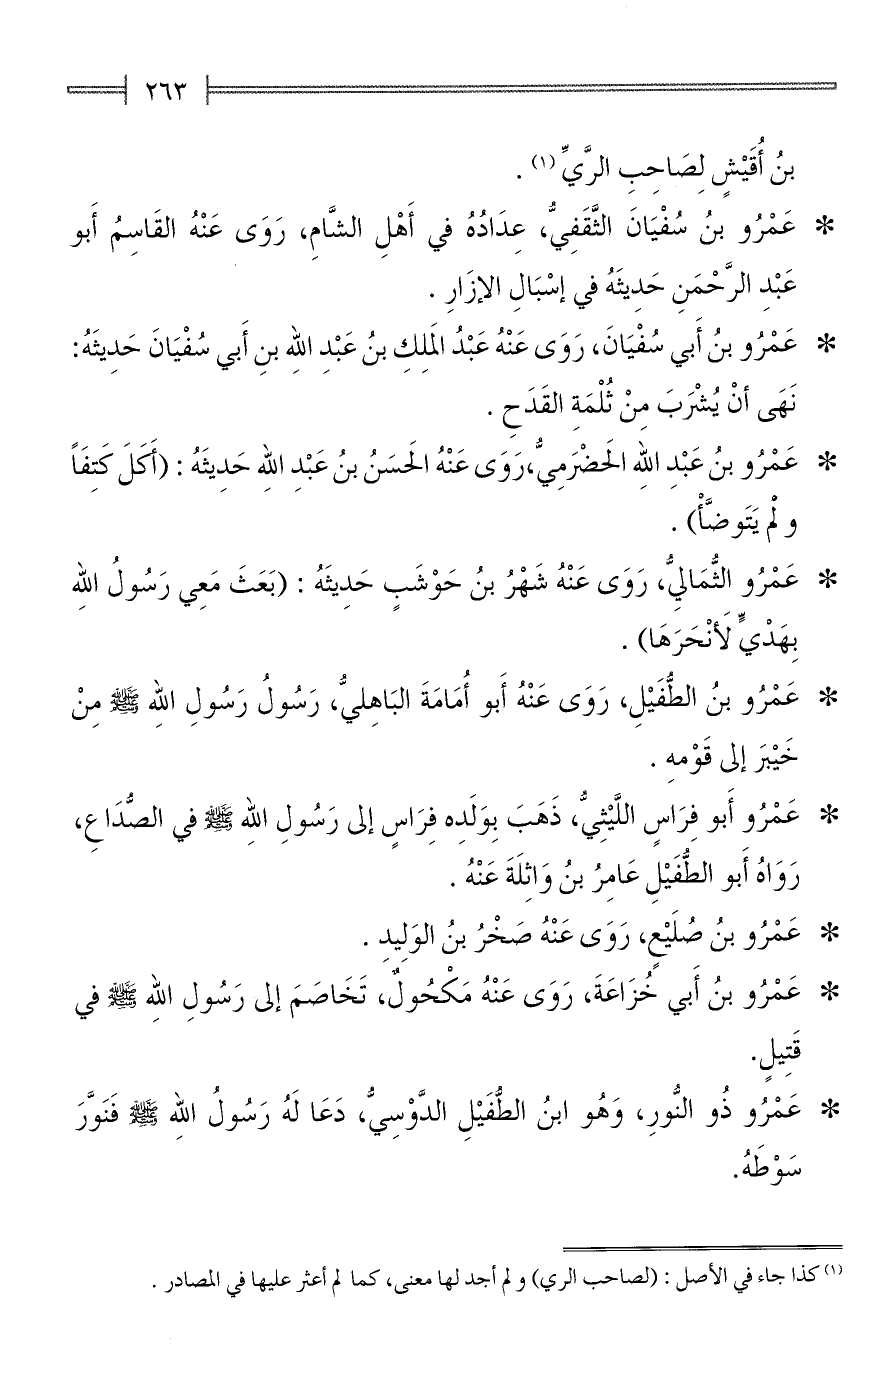 ٢٦٣
بنُ أُقَيْشٍ لِصَاحِبِ الرَّيِّ (١) .
* عَمْرُو بنُ سُفْيَانَ الثَّقَفِيُّ، عِدَادُهُ في أَهْلِ الشَّامِ، رَوَى عَنْهُ القَاسِمُ أَبو
عَبْدِ الرَّحْمَنِ حَدِيثَهُ في إسْبَالِ الإزَارِ .
* عَمْرُو بنُ أَبي سُفْيَانَ، رَوَى عَنْهُ عَبْدُ المَلِكِ بنُ عَبْدِ الله بنِ أَبي سُفْيَانَ حَدِيثَهُ:
نَهَى أنْ يُشْرَبَ مِنْ ثُلْمَةِ القَدَحِ .
* عَمْرُو بنُ عَبْدِ الله الحَضْرَمِيُّ،رَوَى عَنْهُ الحَسَنُ بنُ عَبْدِ الله حَدِيثَهُ : (أَكَلَ كَتِفَاً
و لْم يَتَوضَّأْ) .
* عَمْرُو الثُّمَاليُّ، رَوَى عَنْهُ شَهْرُ بنُ حَوْشَبٍ حَدِيثَهُ : (بَعَثَ مَعِي رَسُولُ اللهِ
بِهَدْيٍّ لَأنْحَرَهَا) .
* عَمْرُو بنُ الطُّفَيْلِ، رَوَى عَنْهُ أَبو أُمَامَةَ البَاهِليُّ، رَسُولُ رَسُولِ اللهِ ﷺ مِنْ
خَيْبَرَ إلى قَوْمهِ .
* عَمْرُو أَبو فِرَاسٍ اللَّيْثِيُّ، ذَهَبَ بِوَلَدِه فِرَاسٍ إلى رَسُولِ اللهِ ﷺ في الصُّدَاعِ،
رَوَاهُ أَبو الطُّفَيْلِ عَامِرُ بنُ وَاثِلَةَ عَنْهُ .
* عَمْرُو بنُ صُلَيْعٍ، رَوَى عَنْهُ صَخْرُ بنُ الوَلِيدِ .
* عَمْرُو بنُ أَبي خُزَاعَةَ، رَوَى عَنْهُ مَكْحُولٌ، تَخَاصَمَ إلى رَسُولِ اللهِ ﷺ في
قَتِيلٍ.
* عَمْرُو ذُو النُّورِ، وَهُو ابنُ الطُّفَيْلِ الدَّوْسِيُّ، دَعَا لَهُ رَسُولُ اللهِ ﷺ فَنَوَّرَ
سَوْطَهُ.
(١) كذا جاء في الأصل : (لصاحب الري) و لم أجد لها معنى، كما لم أعثر عليها في المصادر .